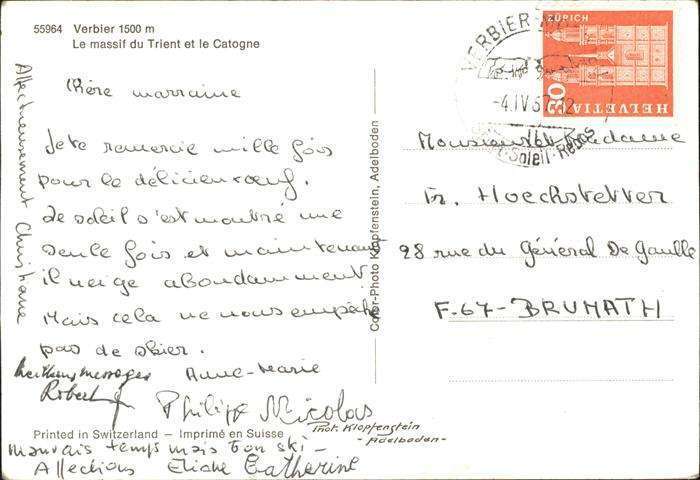 55964 Verbier 1500 m
Le massif du Trient et le Catogne
Chère marraine
Je te remercie mille fois
pour le délicieux œuf.
Le soleil s'est montré une
seule fois et maintenant
il neige abondamment.
Mais cela ne nous empêche
pas de skier.
Anne-Marie
Meilleurs messages
Robert
Philippe Nicolas
Phot. Klopfenstein
- Adelboden -
Printed in Switzerland — Imprimé en Suisse
Mauvais temps mais bon ski -
Affections Eliane Catherine
Affectueusement Christiane
Color-Photo Klopfenstein, Adelboden
VERBIER
-4.IV.6 -12
Soleil-Repos
ZÜRICH
30
HELVETIA
Monsieur et Madame
Fr. Hoechstetter
28 rue du Général De Gaulle
F-67- BRUMATH